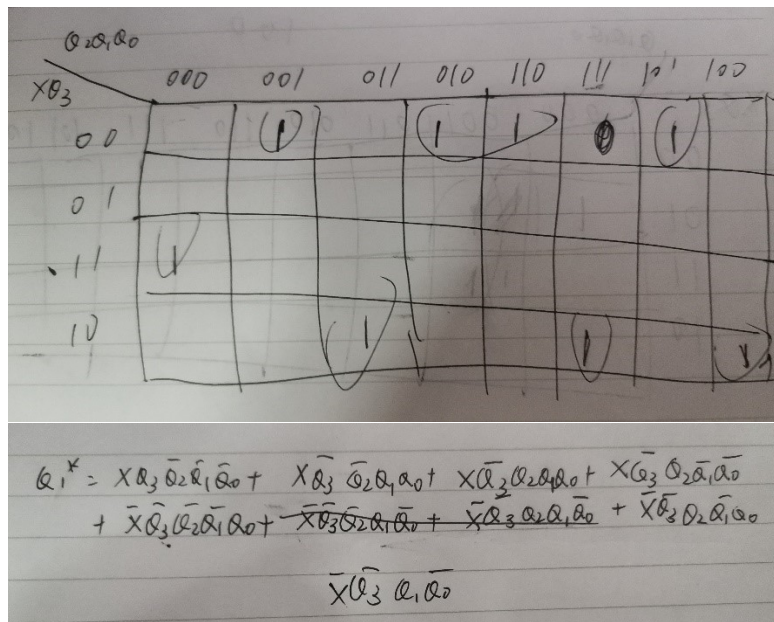 Q₂Q₁Q₀
XQ₃ 000 001 011 010 110 111 101 100
00 1 1 1 0 1
01
11 1
10 1 1 1
Q₁* = XQ₃Q̄₂Q̄₁Q̄₀ + XQ̄₃Q̄₂Q₁Q₀ + XQ̄₃Q₂Q₁Q₀ + XQ̄₃Q₂Q̄₁Q̄₀
+ X̄Q̄₃Q̄₂Q̄₁Q₀ + X̄Q̄₃Q̄₂Q₁Q̄₀ + X̄Q̄₃Q₂Q₁Q̄₀ + X̄Q̄₃Q₂Q̄₁Q₀
X̄Q̄₃Q₁Q̄₀